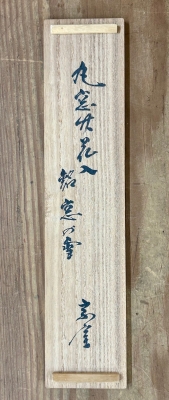 丸窓竹花入
銘 窓の雪